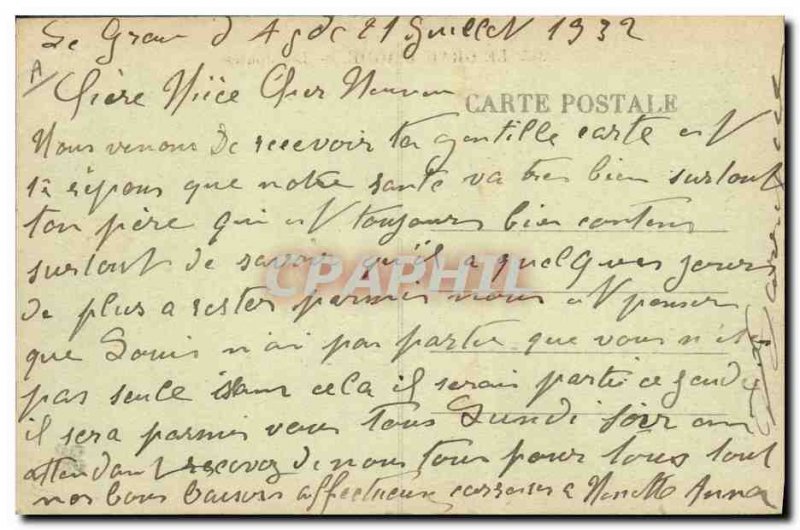 Le Grau d Agde 21 Juillet 1932
Chère Nièce Cher Neuveu
CARTE POSTALE
Nous venons de recevoir ta gentille carte et
te répons que notre santé va tres bien surtout
ton père qui est toujours bien contens
surtout de savoir qu'il a quelques jours
de plus a rester parmis nous et penser
que Louis n'ai pas partie que vous n'
pas seule sans cela il serais partie ce jeudi
il sera parmis vous tous Lundi soir en
attendant recevez de nous tous pour tous tout
nos bons baisers affectueux caresses a Nanette Anna
CPAPHIL